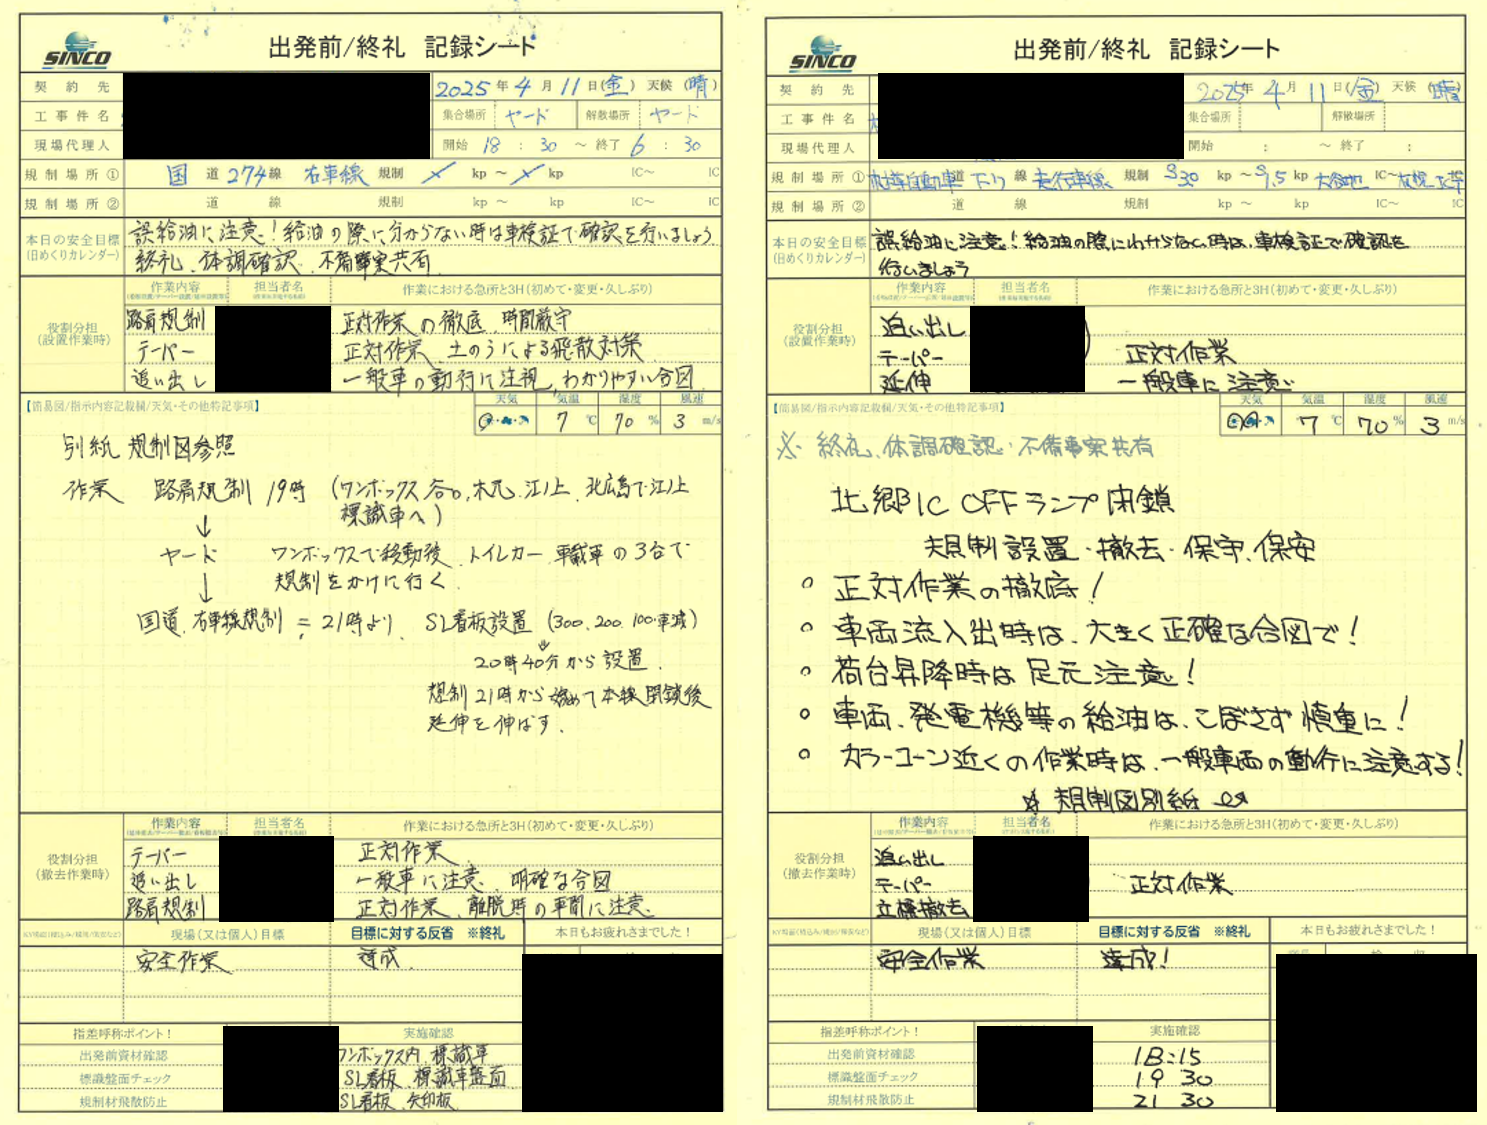 SINCO
出発前/終礼 記録シート
契約先
2025年 4月 11日(金) 天候 (晴)
工事件名
集合場所 ヤード 解散場所 ヤード
現場代理人
開始 18 : 30 ～ 終了 6 : 30
規制場所① 国道 274線 右車線 規制 kp ～ kp IC～ IC
規制場所② 道 線 規制 kp ～ kp IC～ IC
本日の安全目標
(日めくりカレンダー)
誤給油に注意!給油の際に分からない時は車検証で確認を行いましょう
終礼、体調確認、不備事案共有
作業内容 担当者名 作業における急所と3H(初めて・変更・久しぶり)
役割分担
(設置作業時)
路肩規制 正対作業の徹底、時間厳守
テーパー 正対作業、土のうによる飛散対策
追い出し 一般車の動行に注視、わかりやすい合図
【簡易図/指示内容記載欄/天気・その他特記事項】
天気 気温 湿度 風速
7 ℃ 70 % 3 m/s
別紙 規制図参照
作業 路肩規制 19時 (ワンボックス 谷口、木元、江ノ上、北広島で江ノ上
標識車へ)
↓
ヤード ワンボックスで移動後、トイレカー 車載車の3台で
規制をかけに行く.
↓
国道、右車線規制 = 21時より、SL看板設置 (300、200、100・車減)
20時40分から設置.
規制21時から始めて本線閉鎖後
延伸を伸ばす.
作業内容 担当者名 作業における急所と3H(初めて・変更・久しぶり)
役割分担
(撤去作業時)
テーパー 正対作業
追い出し 一般車に注意、明確な合図
路肩規制 正対作業、離脱時の車間に注意
現場(又は個人)目標 目標に対する反省 ※終礼 本日もお疲れさまでした!
安全作業 達成
指差呼称ポイント! 実施確認
出発前資材確認 ワンボックス内、標識車
標識盤面チェック SL看板、標識車盤面
規制材飛散防止 SL看板、矢印板
SINCO
出発前/終礼 記録シート
契約先
2025年 4月 11日(金) 天候 (晴)
工事件名
集合場所 解散場所
現場代理人
開始 : ～ 終了 :
規制場所① 道央自動車道 下り 線 走行車線 規制 kp ～ kp 大谷地 IC～ 札幌 IC
規制場所② 道 線 規制 kp ～ kp IC～ IC
本日の安全目標
(日めくりカレンダー)
誤給油に注意!給油の際にわからない時は、車検証で確認を
行いましょう
作業内容 担当者名 作業における急所と3H(初めて・変更・久しぶり)
役割分担
(設置作業時)
追い出し
テーパー 正対作業
延伸 一般車に注意
【簡易図/指示内容記載欄/天気・その他特記事項】
天気 気温 湿度 風速
7 ℃ 70 % 3 m/s
※ 終礼、体調確認・不備事案共有
北郷IC OFFランプ閉鎖
規制設置・撤去・保守、保安
○ 正対作業の徹底!
○ 車両流入出時は、大きく正確な合図で!
○ 荷台昇降時は足元注意!
○ 車両、発電機等の給油は、こぼさず慎重に!
○ カラーコーン近くの作業時は、一般車両の動行に注意する!
☆ 規制図別紙 ☆
作業内容 担当者名 作業における急所と3H(初めて・変更・久しぶり)
役割分担
(撤去作業時)
追い出し
テーパー 正対作業
立標撤去
現場(又は個人)目標 目標に対する反省 ※終礼 本日もお疲れさまでした!
安全作業 達成!
指差呼称ポイント! 実施確認
出発前資材確認 18:15
標識盤面チェック 19 30
規制材飛散防止 21 30